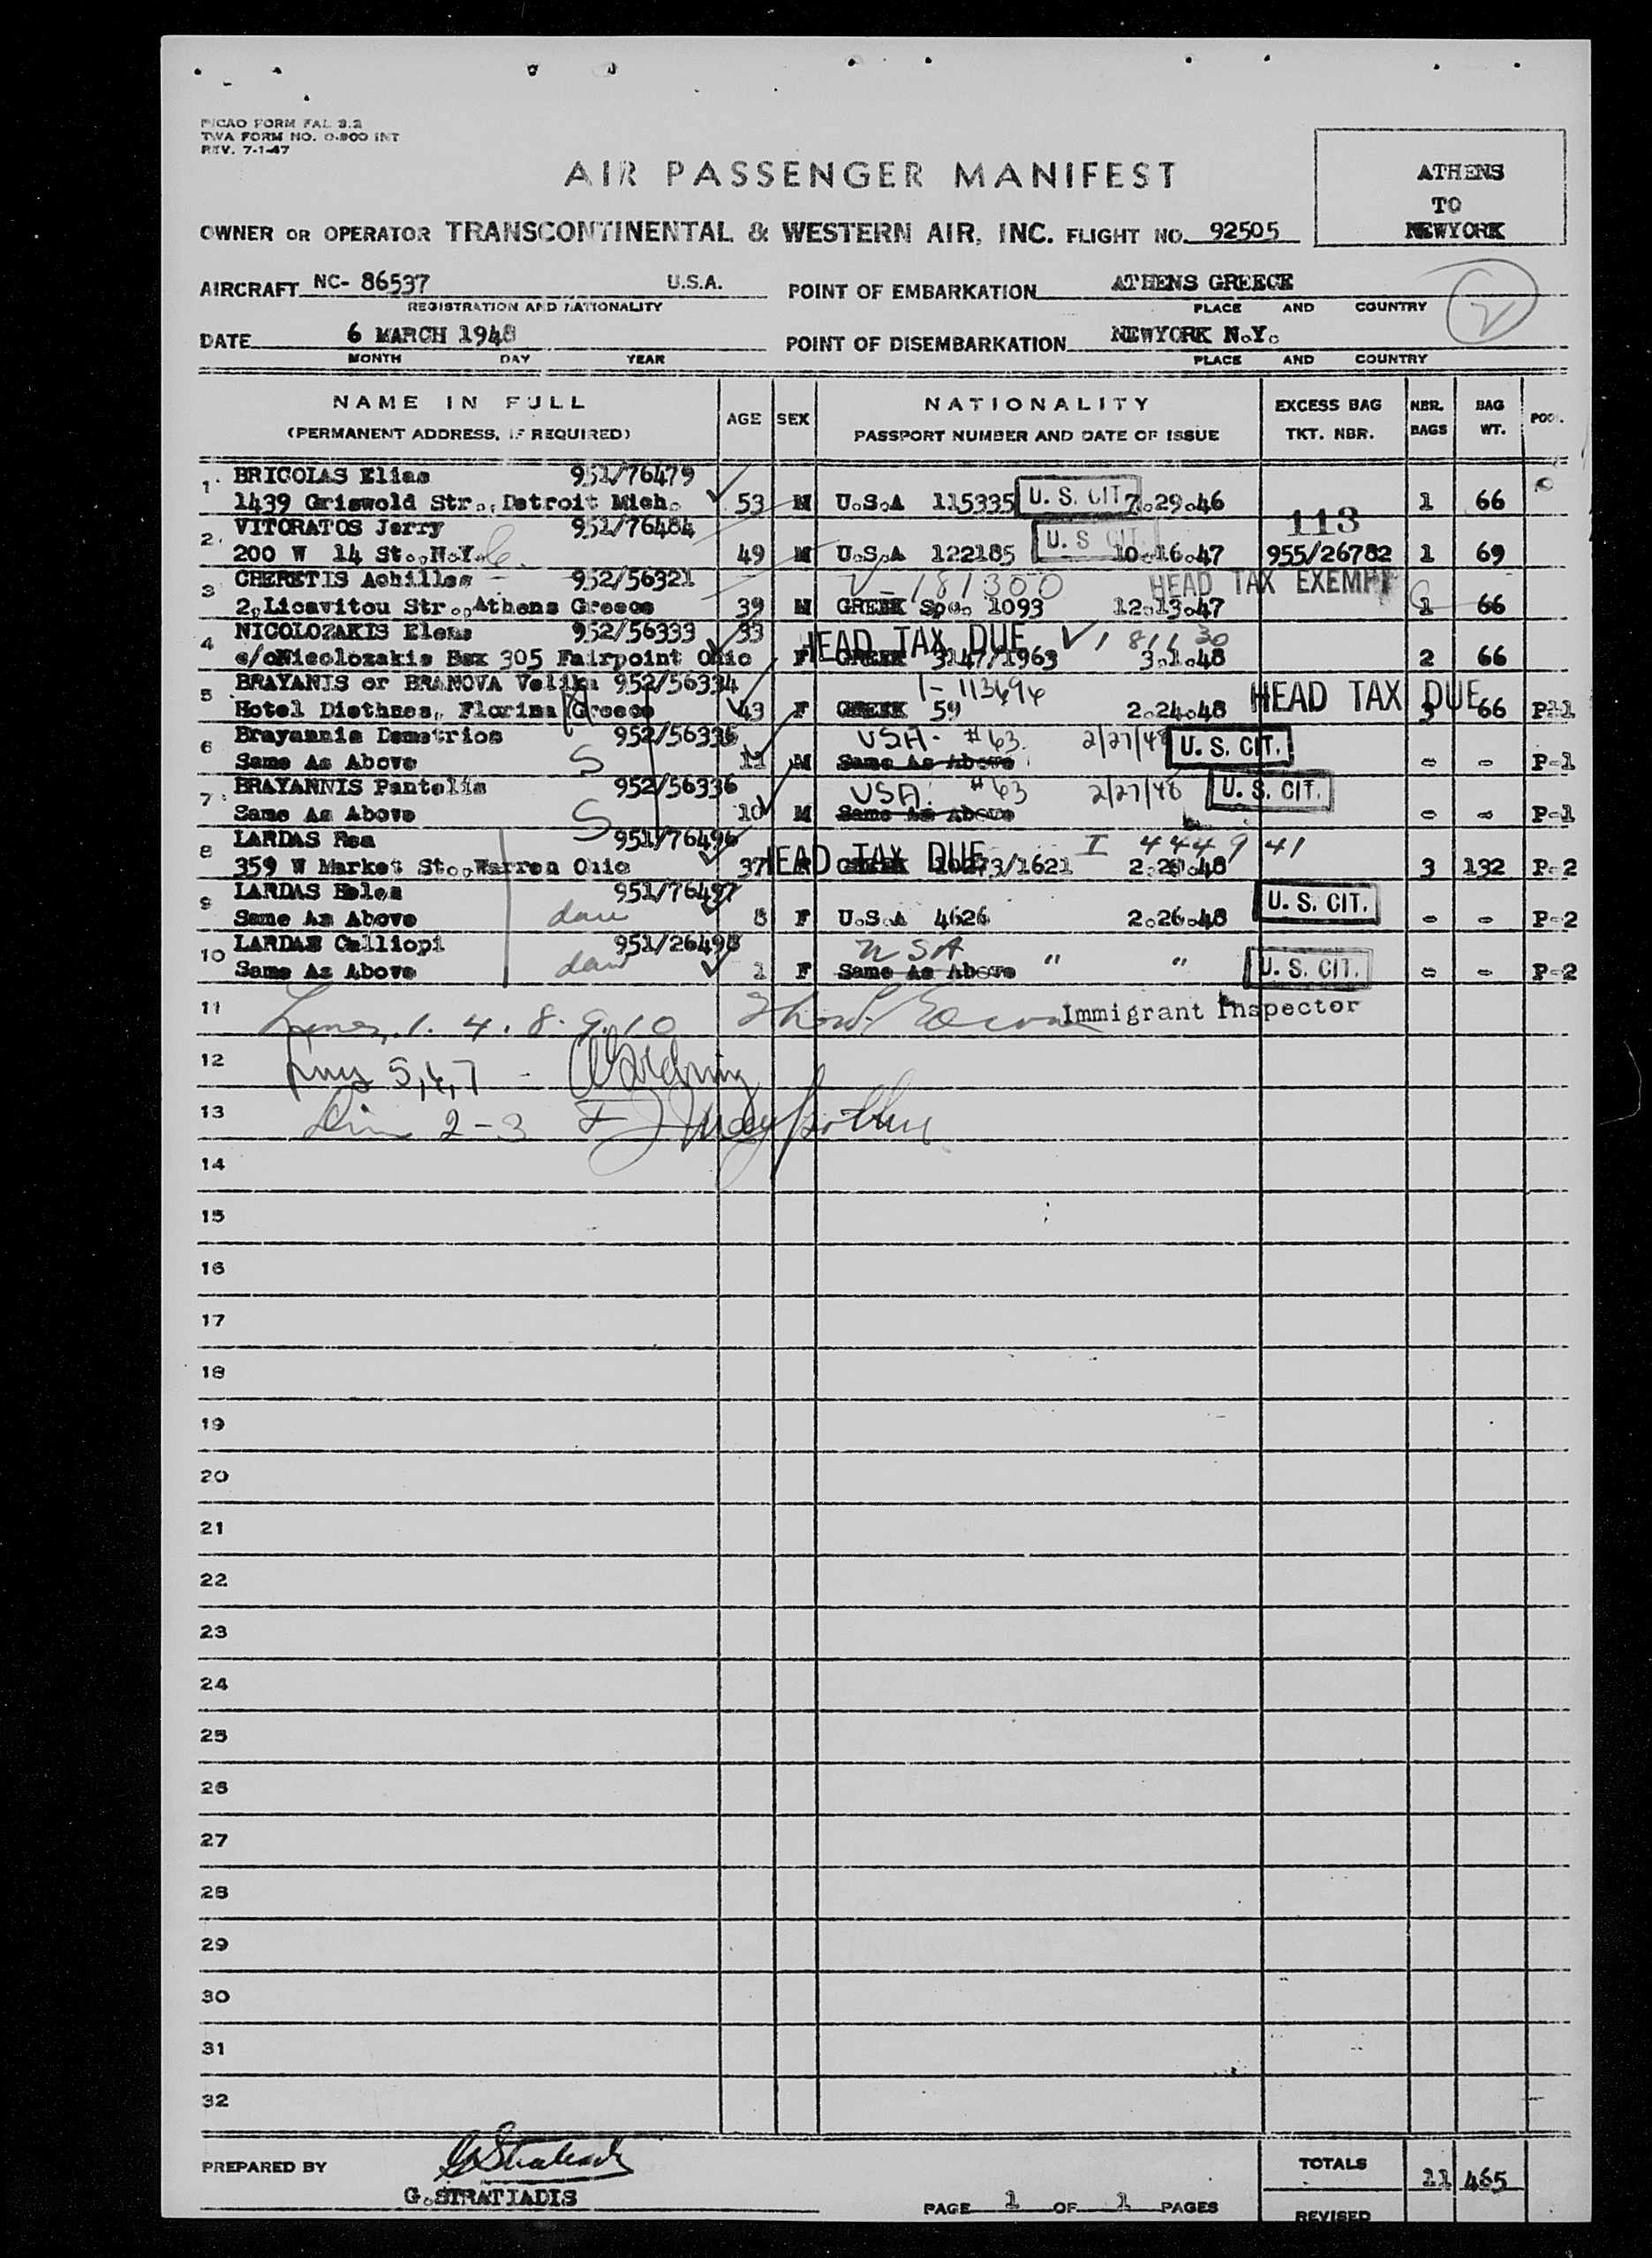 PICAO FORM FAL 3.2
TWA FORM NO. O-900 INT
REV. 7-1-47
AIR PASSENGER MANIFEST
ATHENS
TO
NEWYORK
OWNER OR OPERATOR TRANSCONTINENTAL & WESTERN AIR, INC. FLIGHT NO. 92505
AIRCRAFT NC- 86537 U.S.A. POINT OF EMBARKATION ATHENS GREECE
REGISTRATION AND NATIONALITY PLACE AND COUNTRY
2
DATE 6 MARCH 1948 POINT OF DISEMBARKATION NEWYORK N.Y.
MONTH DAY YEAR PLACE AND COUNTRY
NAME IN FULL AGE SEX NATIONALITY EXCESS BAG NBR. BAG POOL
(PERMANENT ADDRESS, IF REQUIRED) PASSPORT NUMBER AND DATE OF ISSUE TKT. NBR. BAGS WT.
1. BRICOLAS Elias 951/76479
1439 Griswold Str., Detroit Mich. 53 M U.S.A 115335 U. S. CIT 7.29.46 1 66
2. VITORATOS Jerry 951/76484 113
200 W 14 St., N.Y. 49 M U.S.A 122185 U. S CIT. 10.16.47 955/26782 1 69
3 CHERETIS Achilles 952/56321 V-181300 HEAD TAX EXEMPT
2, Licavitou Str., Athens Greece 39 M GREEK Spe. 1093 12.13.47 1 66
4 NICOLOZAKIS Elens 952/56333 33 HEAD TAX DUE
c/oNicolozakis Box 305 Fairpoint Ohio F GREEK 3147/1963 3.1.48 2 66
5 BRAYANIS or BRANOVA Velika 952/56334 I-113694 HEAD TAX DUE
Hotel Diethnes, Florina Greece 43 F GREEK 59 2.24.48 3 66 P-1
6 Brayannis Demetrios 952/56335 USA- #63. 2/27/48 U. S. CIT.
Same As Above S 11 M Same As Above - - P-1
7. BRAYANNIS Pantelis 952/56336 USA. #63 2/27/48 U. S. CIT.
Same As Above S 10 M Same As Above - - P-1
8 LARDAS Rea 951/76496 HEAD TAX DUE I 444941
359 W Market St., Warren Ohio 37 F GREEK 10273/1621 2.20.48 3 132 P-2
9 LARDAS Helen 951/76497 U. S. CIT.
Same As Above dau 8 F U.S.A 4626 2.26.48 - - P-2
10 LARDAS Calliopi 951/26498 USA " "
Same As Above dau 1 F Same As Above U. S. CIT. - - P-2
11 Lines, 1. 4. 8. 9. 10 Immigrant Inspector
12 Lines 5,6,7 -
13 Line 2-3
14
15
16
17
18
19
20
21
22
23
24
25
26
27
28
29
30
31
32
PREPARED BY
G. STRATIADIS
PAGE 1 OF 1 PAGES
TOTALS 11 465
REVISED